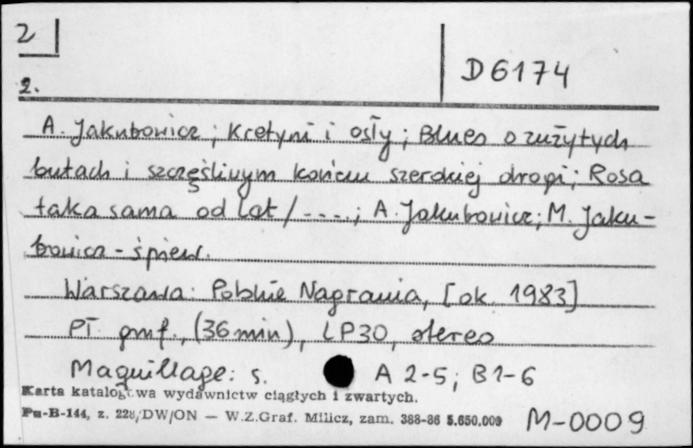 2
D6174
2.
A. Jakubowicz; Kretyni i osły; Blues o zużytych
butach i szczęśliwym końcu szerokiej drogi; Rosa
taka sama od lat / ----; A. Jakubowicz; M. Jaku-
bowicz - śpiew.
Warszawa: Polskie Nagrania, [ok. 1983]
Pł. gmf., (36 min), LP30, stereo
Maquillage: s. A 2-5; B 1-6
Karta katalogowa wydawnictw ciągłych i zwartych.
Pu-B-144, z. 228/DW/ON — W.Z.Graf. Milicz, zam. 388-86 5.650.000
M-0009